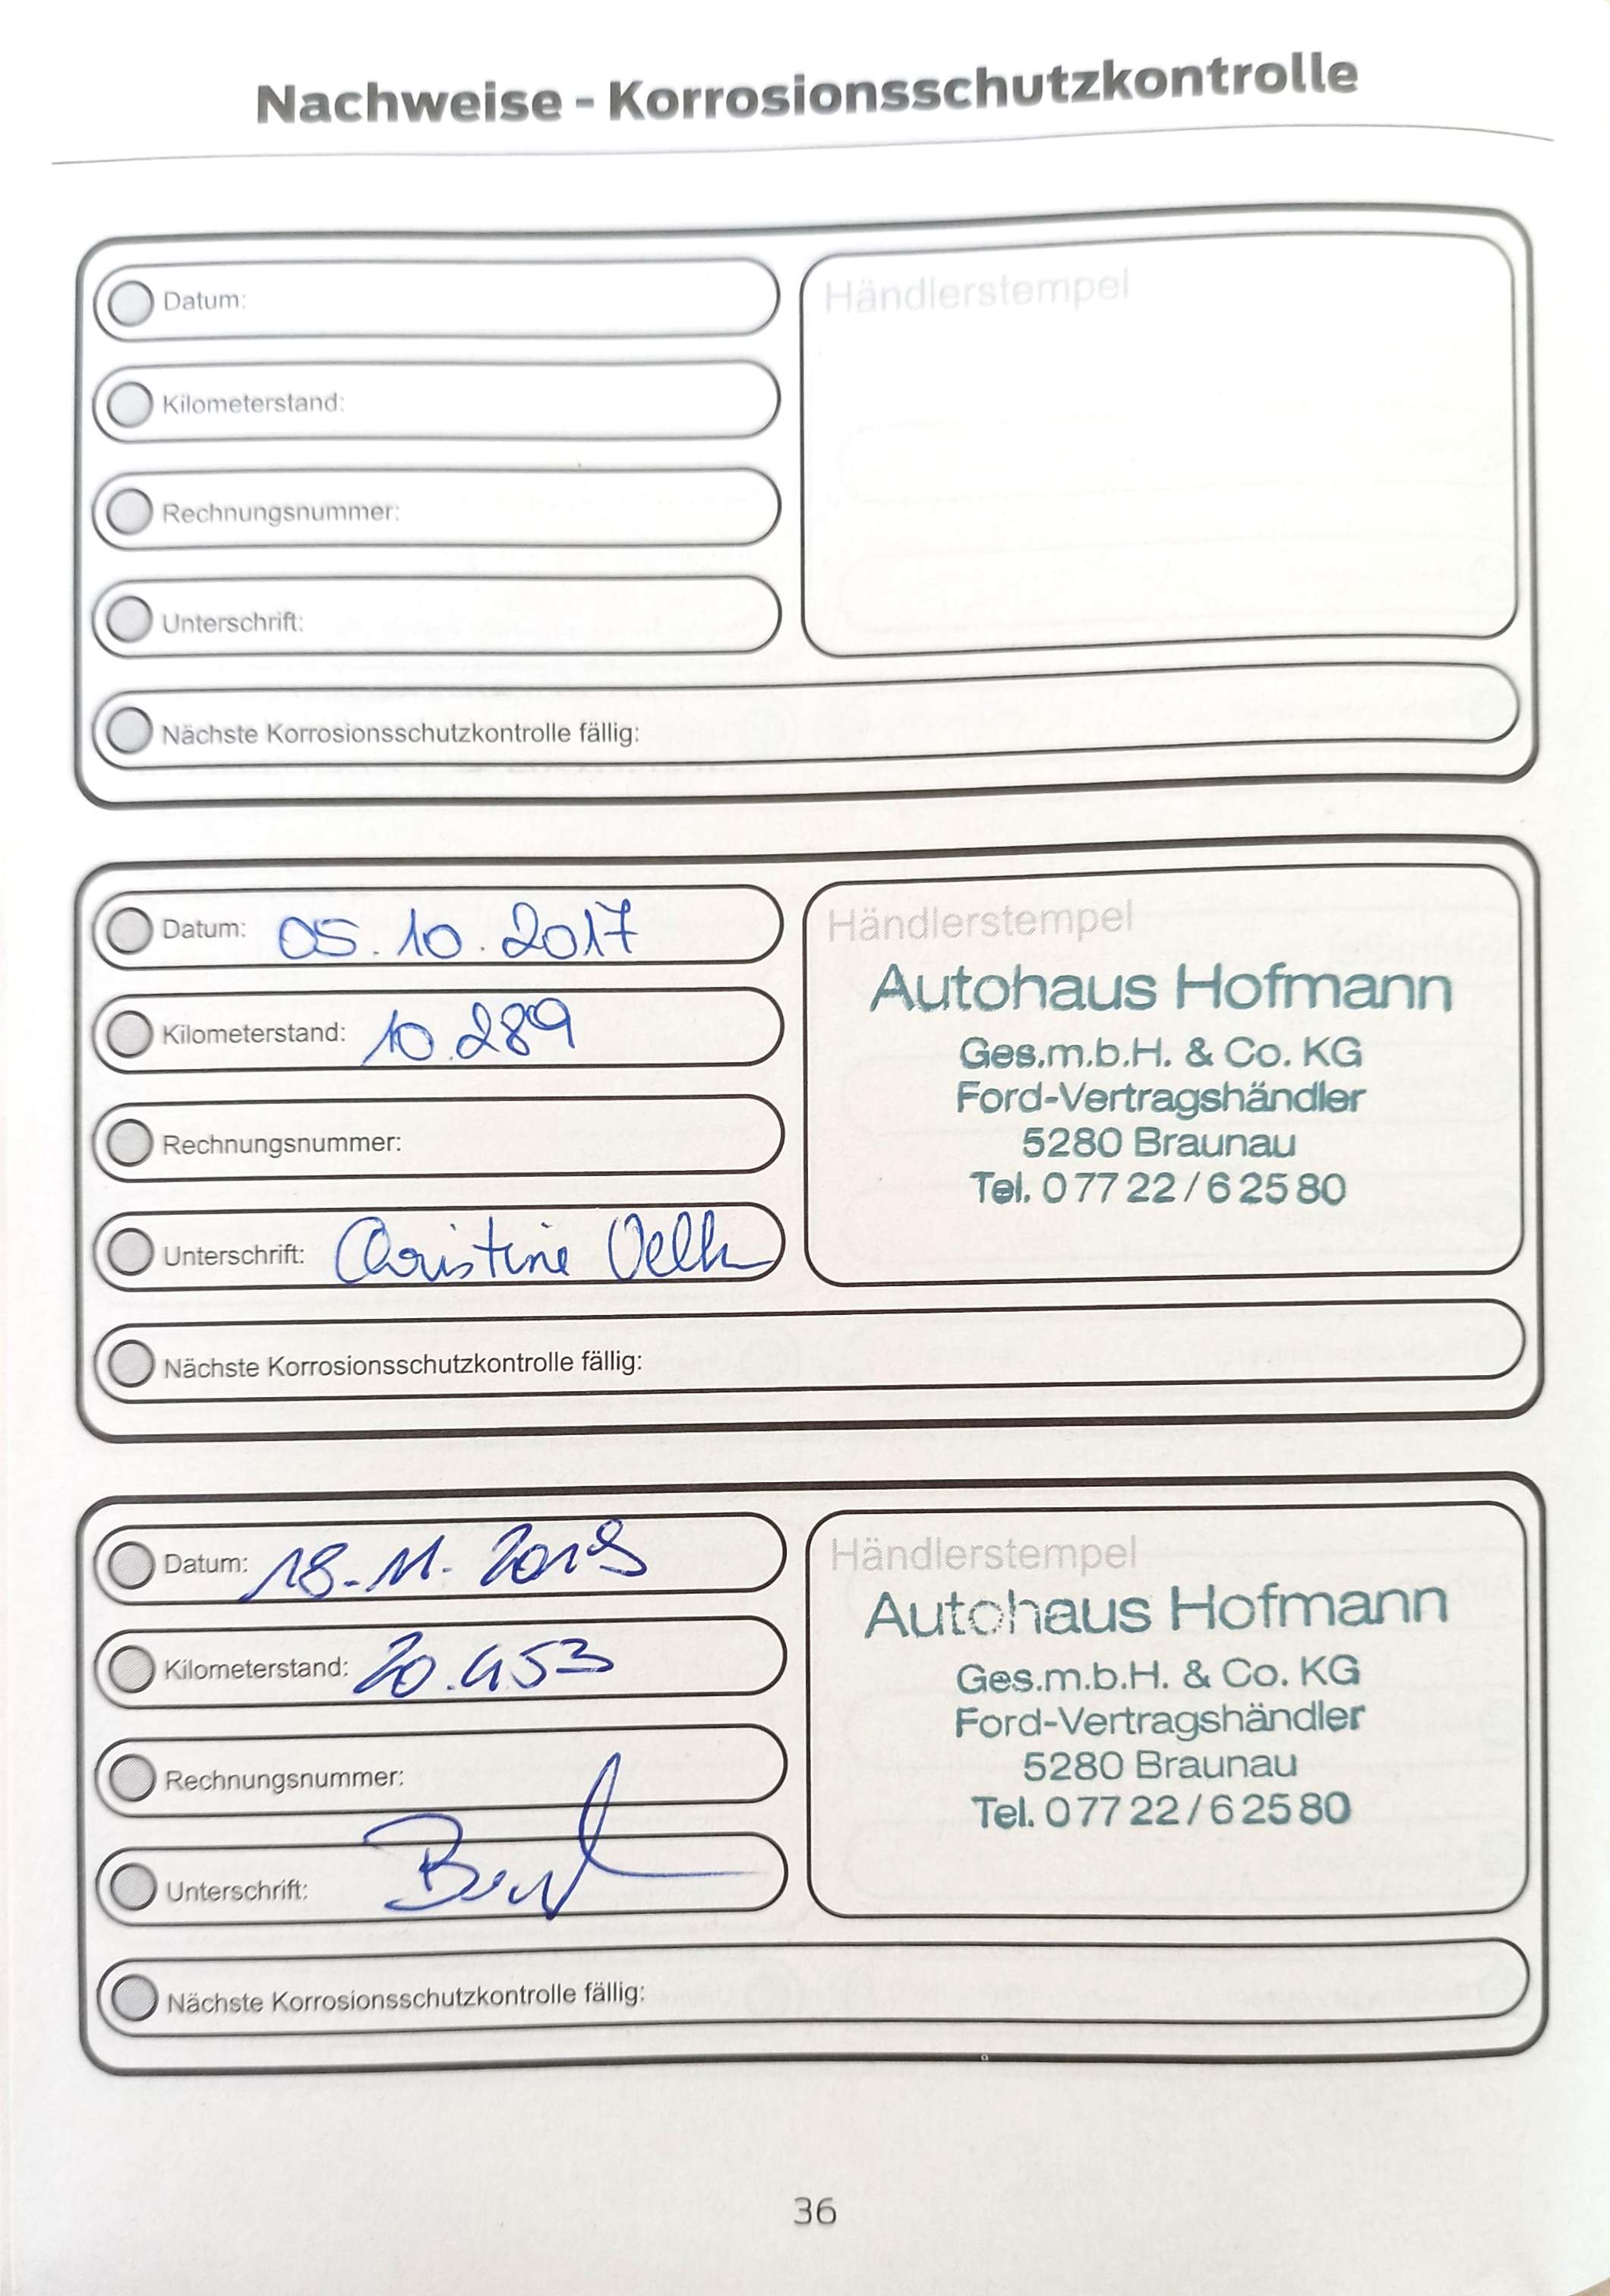 Nachweise - Korrosionsschutzkontrolle
Datum:
Kilometerstand:
Rechnungsnummer:
Unterschrift:
Händlerstempel
Nächste Korrosionsschutzkontrolle fällig:
Datum: 05.10.2017
Kilometerstand: 10.289
Rechnungsnummer:
Unterschrift: Christine
Händlerstempel
Autohaus Hofmann
Ges.m.b.H. & Co. KG
Ford-Vertragshändler
5280 Braunau
Tel. 0 77 22 / 6 25 80
Nächste Korrosionsschutzkontrolle fällig:
Datum: 18.11.2019
Kilometerstand: 20.453
Rechnungsnummer:
Unterschrift:
Händlerstempel
Autohaus Hofmann
Ges.m.b.H. & Co. KG
Ford-Vertragshändler
5280 Braunau
Tel. 0 77 22 / 6 25 80
Nächste Korrosionsschutzkontrolle fällig:
36